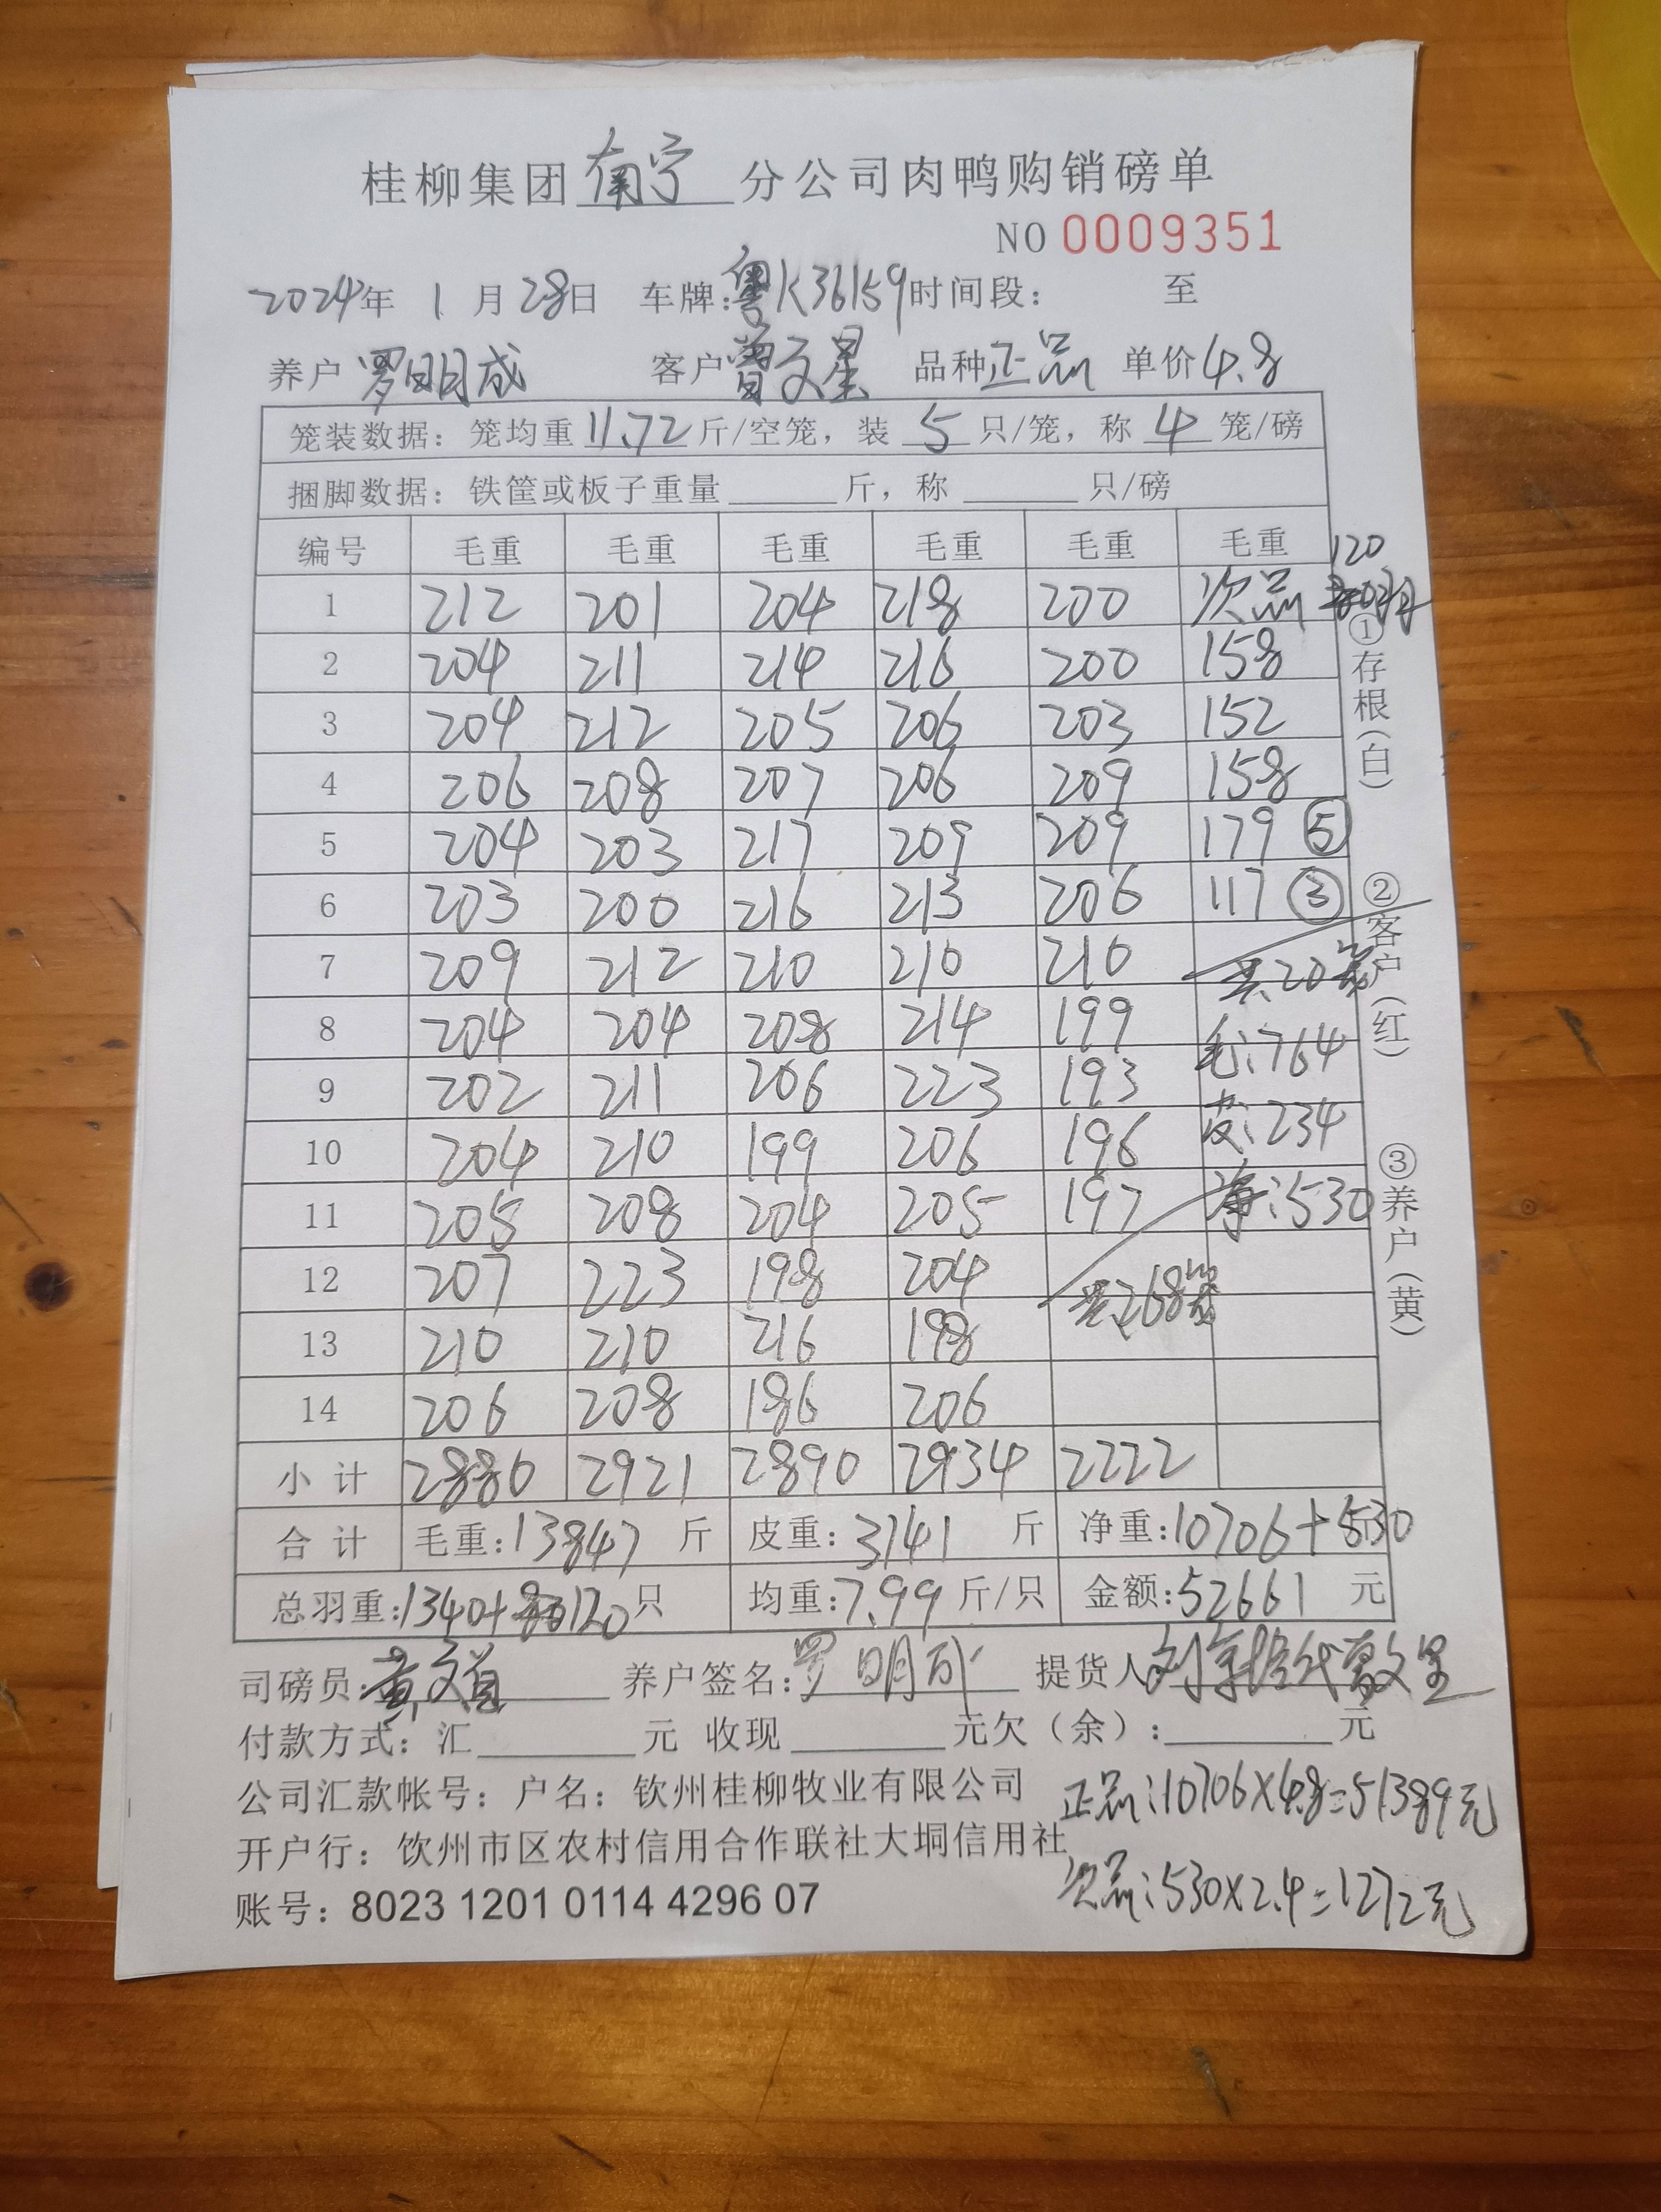 桂柳集团南宁分公司肉鸭购销磅单
NO 0009351
2024年 1 月 28日 车牌:粤K36159 时间段: 至
养户 罗明成 客户 曾文星 品种 正品 单价 4.8
笼装数据:笼均重 11.72 斤/空笼,装 5 只/笼,称 4 笼/磅
捆脚数据:铁筐或板子重量 斤,称 只/磅
编号 毛重 毛重 毛重 毛重 毛重 毛重 120
1 212 201 204 218 200 次品
2 204 211 214 216 200 158
3 204 212 205 206 203 152
4 206 208 207 206 209 158
5 204 203 217 209 209 179 ⑤
6 203 200 216 213 206 117 ③
7 209 212 210 210 210 共20笼
8 204 204 208 214 199 毛:764
9 202 211 206 223 193 皮:234
10 204 210 199 206 196
11 205 208 204 205 197 净:530
12 207 223 198 204 共268笼
13 210 210 216 198
14 206 208 186 206
小计 2880 2921 2890 2934 2222
合计 毛重:13847 斤 皮重:3141 斤 净重:10706+530
总羽重:1340+120只 均重:7.99 斤/只 金额:52661 元
司磅员: 养户签名:罗明成 提货人
付款方式:汇 元 收现 元欠(余): 元
公司汇款帐号:户名:钦州桂柳牧业有限公司
正品:10706×4.8=51389元
开户行:饮州市区农村信用合作联社大垌信用社
次品:530×2.4=1272元
账号:8023 1201 0114 4296 07
①存根(白)
②客户(红)
③养户(黄)